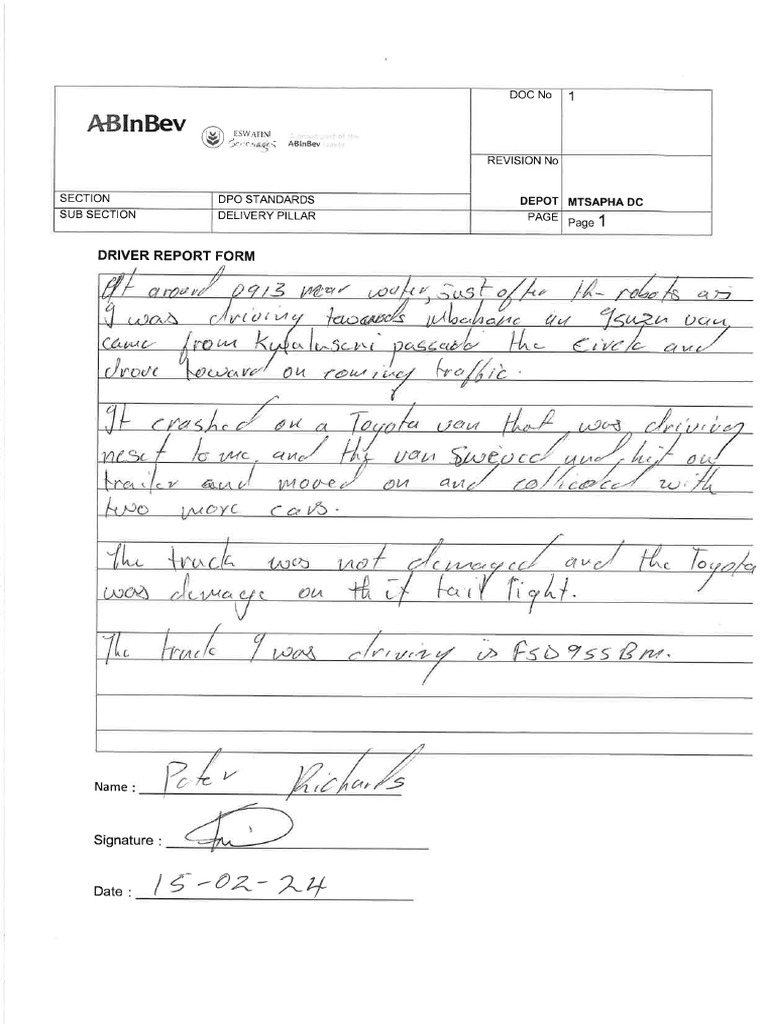 ABInBev
ESWATINI
Beverages
A proud part of the
ABInBev family
DOC No 1
REVISION No
SECTION DPO STANDARDS DEPOT MTSAPHA DC
SUB SECTION DELIVERY PILLAR PAGE Page 1
DRIVER REPORT FORM
At around 0913 near water, just after the robots as
I was driving towards mbabane an Isuzu van
came from Kwaluseni passed the Circle and
drove toward on coming traffic.
It crashed on a Toyota van that was driving
next to me, and the van sweved and hit our
trailer and moved on and collided with
two more cars.
The truck was not demaged and the Toyota
was demage on th it tail light.
The truck I was driving is FSD955BM.
Name : Peter Richards
Signature :
Date : 15-02-24